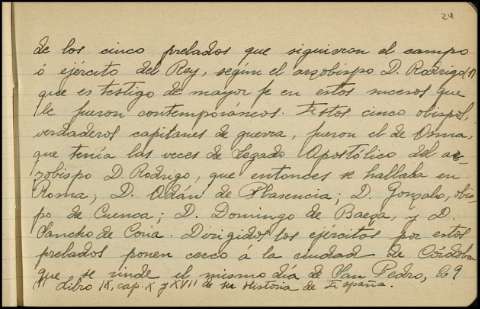 24
de los cinco prelados que siguieron el campo
ó ejército del Rey, según el arzobispo D. Rodrigo, (1)
que es testigo del mayor fe en estos sucesos que
le fueron contemporáneos. Estos cinco obispos,
verdaderos capitanes de guerra, fueron el de Osma,
que tenía las veces de Legado Apostólico del ar-
zobispo D. Rodrigo, que entonces se hallaba en
Roma; D. Adán de Plasencia; D. Gonzalo, obis
po de Cuenca; D. Domingo de Baeza, y D.
Sancho de Coria. Dirigidos los ejércitos por estos
prelados ponen cerco á la ciudad de Córdoba
que se rinde el mismo día de San Pedro, 29
(1) Libro IX, cap. X y XVII de su Historia de España.